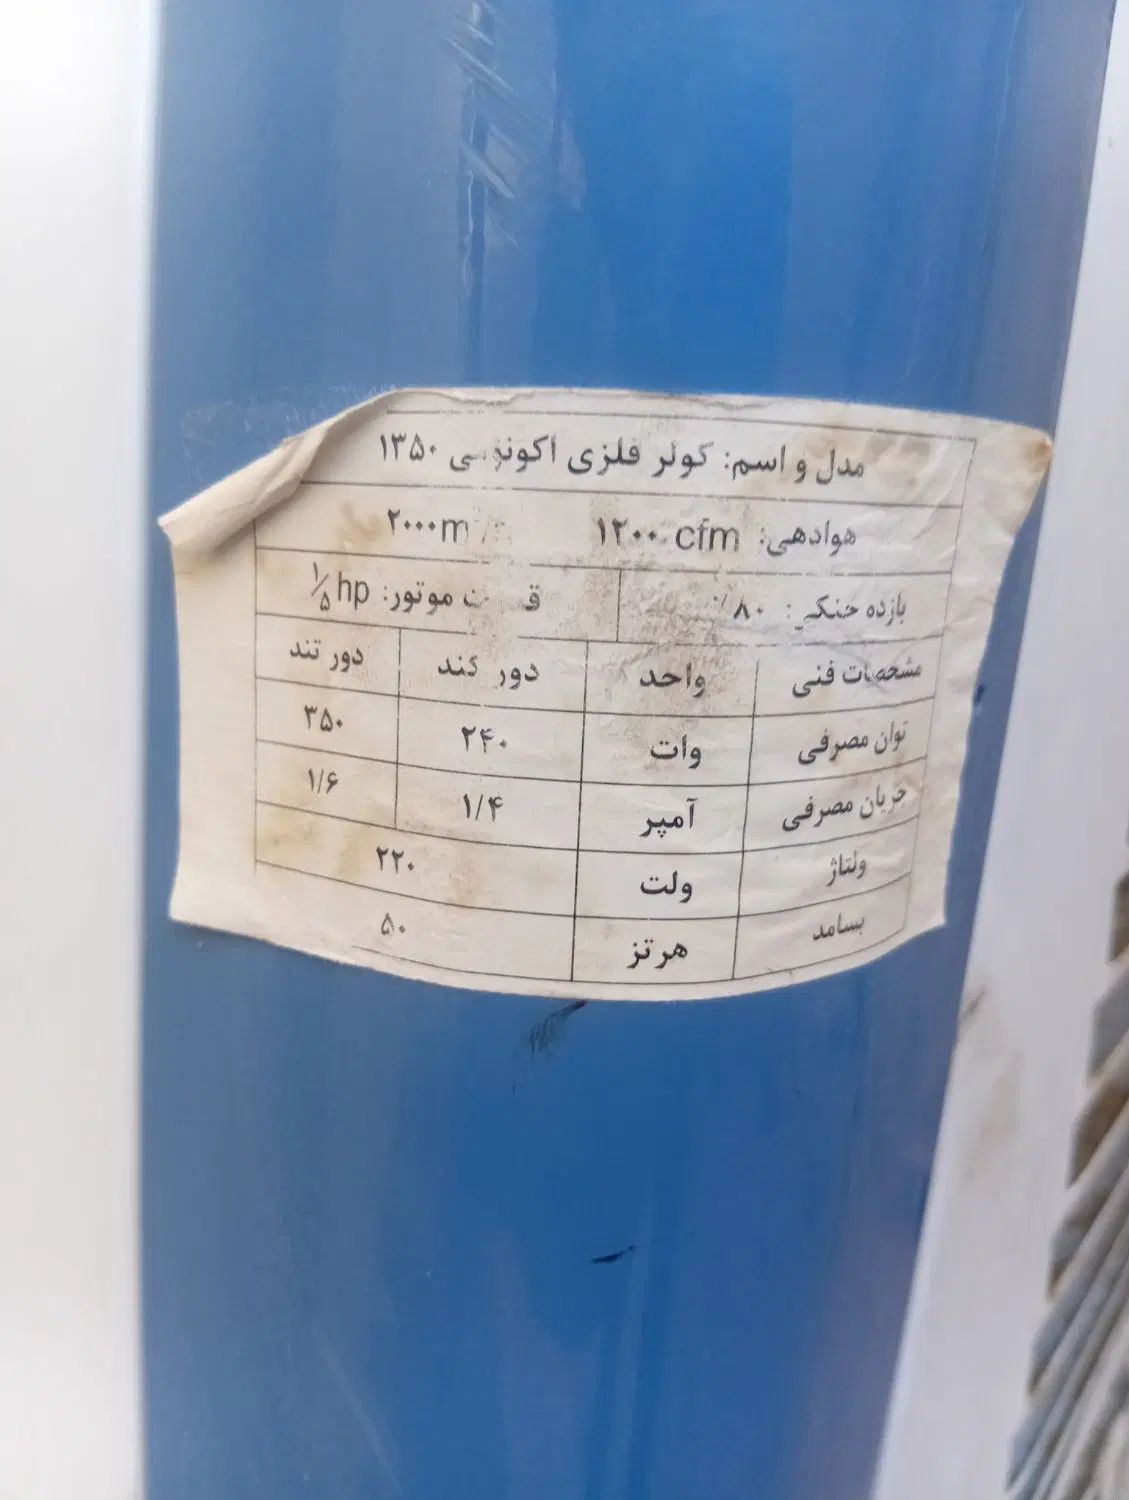 مدل و اسم: کولر فلزی اکونومی ۱۳۵۰
هوادهی: ۱۲۰۰ cfm ۲۰۰۰m
بازده خنکی: ۸۰٪ موتور: ۱/۵ hp
مشخصات فنی واحد دور کند دور تند
توان مصرفی وات ۲۴۰ ۳۵۰
جریان مصرفی آمپر ۱/۴ ۱/۶
ولتاژ ولت ۲۲۰
بسامد هرتز ۵۰